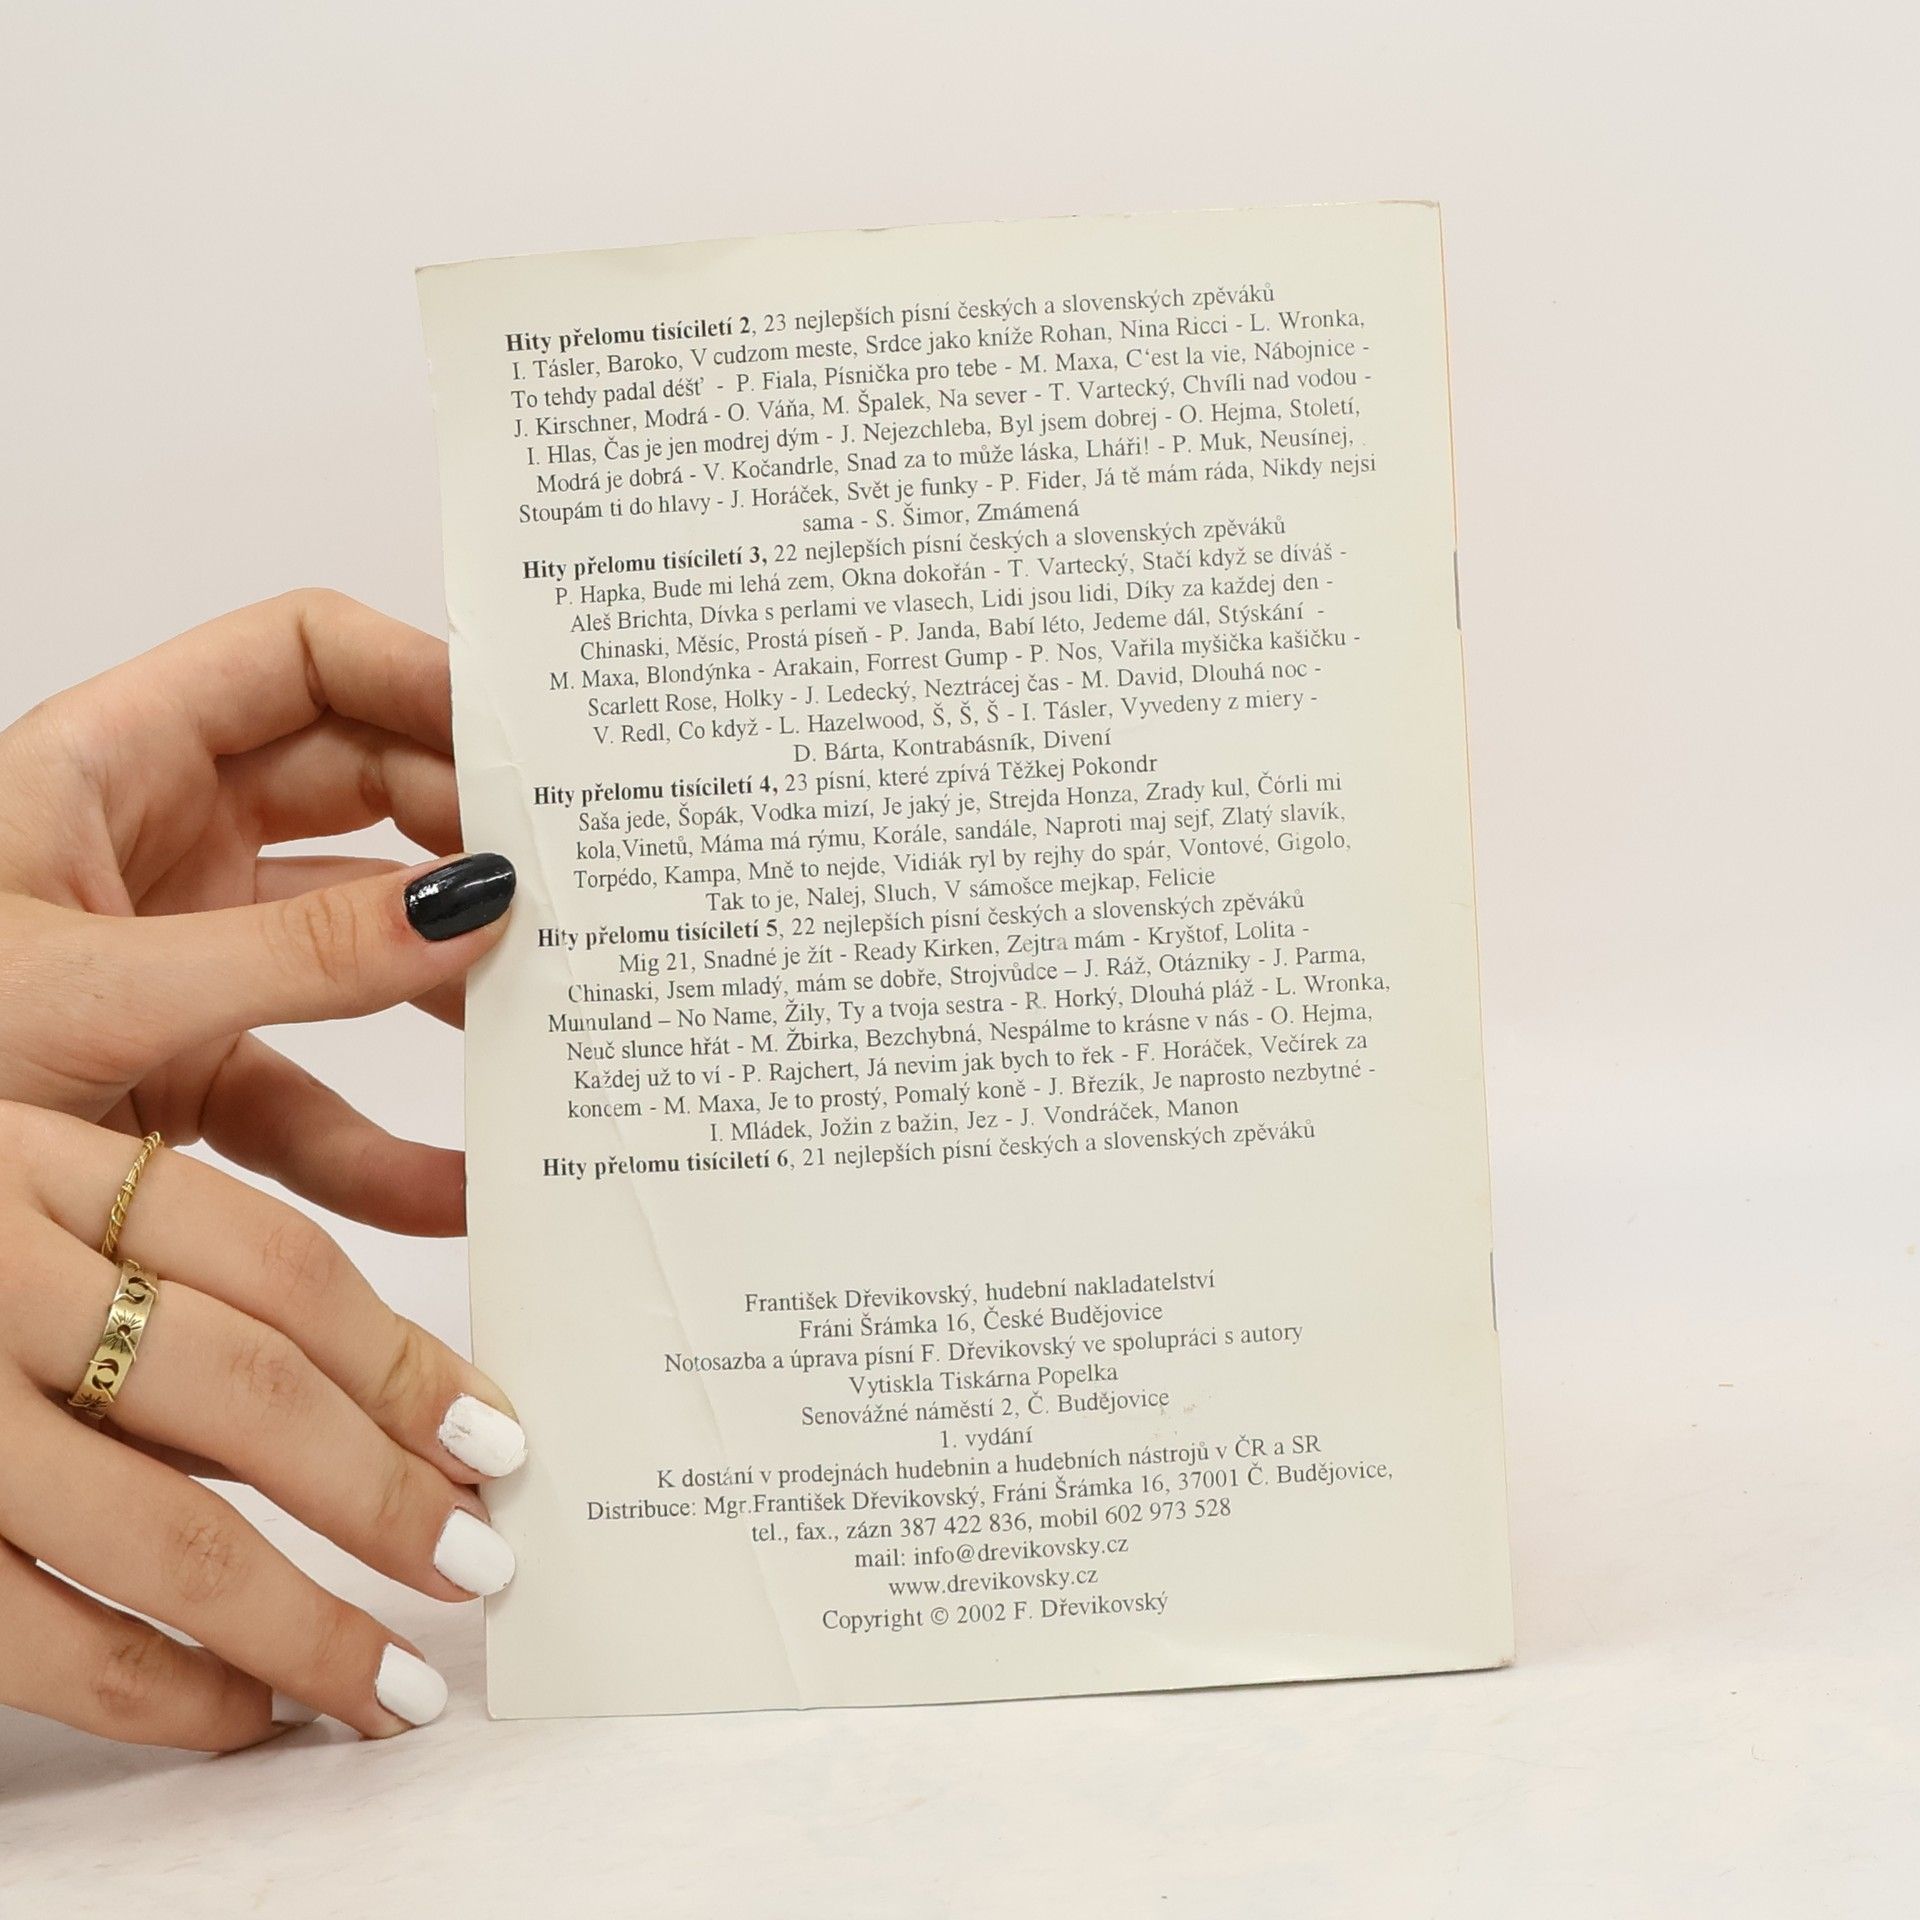 Hity přelomu tisíciletí 2, 23 nejlepších písní českých a slovenských zpěváků
I. Tásler, Baroko, V cudzom meste, Srdce jako kníže Rohan, Nina Ricci - L. Wronka,
To tehdy padal déšť - P. Fiala, Písnička pro tebe - M. Maxa, C‘est la vie, Nábojnice -
J. Kirschner, Modrá - O. Váňa, M. Špalek, Na sever - T. Vartecký, Chvíli nad vodou -
I. Hlas, Čas je jen modrej dým - J. Nejezchleba, Byl jsem dobrej - O. Hejma, Století,
Modrá je dobrá - V. Kočandrle, Snad za to může láska, Lháři! - P. Muk, Neusínej,
Stoupám ti do hlavy - J. Horáček, Svět je funky - P. Fider, Já tě mám ráda, Nikdy nejsi
sama - S. Šimor, Zmámená
Hity přelomu tisíciletí 3, 22 nejlepších písní českých a slovenských zpěváků
P. Hapka, Bude mi lehá zem, Okna dokořán - T. Vartecký, Stačí když se díváš -
Aleš Brichta, Dívka s perlami ve vlasech, Lidi jsou lidi, Díky za každej den -
Chinaski, Měsíc, Prostá píseň - P. Janda, Babí léto, Jedeme dál, Stýskání -
M. Maxa, Blondýnka - Arakain, Forrest Gump - P. Nos, Vařila myšička kašičku -
Scarlett Rose, Holky - J. Ledecký, Neztrácej čas - M. David, Dlouhá noc -
V. Redl, Co když - L. Hazelwood, Š, Š, Š - I. Tásler, Vyvedeny z miery -
D. Bárta, Kontrabásník, Divení
Hity přelomu tisíciletí 4, 23 písní, které zpívá Těžkej Pokondr
Saša jede, Šopák, Vodka mizí, Je jaký je, Strejda Honza, Zrady kul, Čórli mi
kola,Vinetů, Máma má rýmu, Korále, sandále, Naproti maj sejf, Zlatý slavík,
Torpédo, Kampa, Mně to nejde, Vidiák ryl by rejhy do spár, Vontové, Gigolo,
Tak to je, Nalej, Sluch, V sámošce mejkap, Felicie
Hity přelomu tisíciletí 5, 22 nejlepších písní českých a slovenských zpěváků
Mig 21, Snadné je žít - Ready Kirken, Zejtra mám - Kryštof, Lolita -
Chinaski, Jsem mladý, mám se dobře, Strojvůdce – J. Ráž, Otázniky - J. Parma,
Mumuland – No Name, Žily, Ty a tvoja sestra - R. Horký, Dlouhá pláž - L. Wronka,
Neuč slunce hřát - M. Žbirka, Bezchybná, Nespálme to krásne v nás - O. Hejma,
Každej už to ví - P. Rajchert, Já nevim jak bych to řek - F. Horáček, Večírek za
koncem - M. Maxa, Je to prostý, Pomalý koně - J. Březík, Je naprosto nezbytné -
I. Mládek, Jožin z bažin, Jez - J. Vondráček, Manon
Hity přelomu tisíciletí 6, 21 nejlepších písní českých a slovenských zpěváků
František Dřevikovský, hudební nakladatelství
Fráni Šrámka 16, České Budějovice
Notosazba a úprava písní F. Dřevikovský ve spolupráci s autory
Vytiskla Tiskárna Popelka
Senovážné náměstí 2, Č. Budějovice
1. vydání
K dostání v prodejnách hudebnin a hudebních nástrojů v ČR a SR
Distribuce: Mgr.František Dřevikovský, Fráni Šrámka 16, 37001 Č. Budějovice,
tel., fax., zázn 387 422 836, mobil 602 973 528
mail: info@drevikovsky.cz
www.drevikovsky.cz
Copyright © 2002 F. Dřevikovský